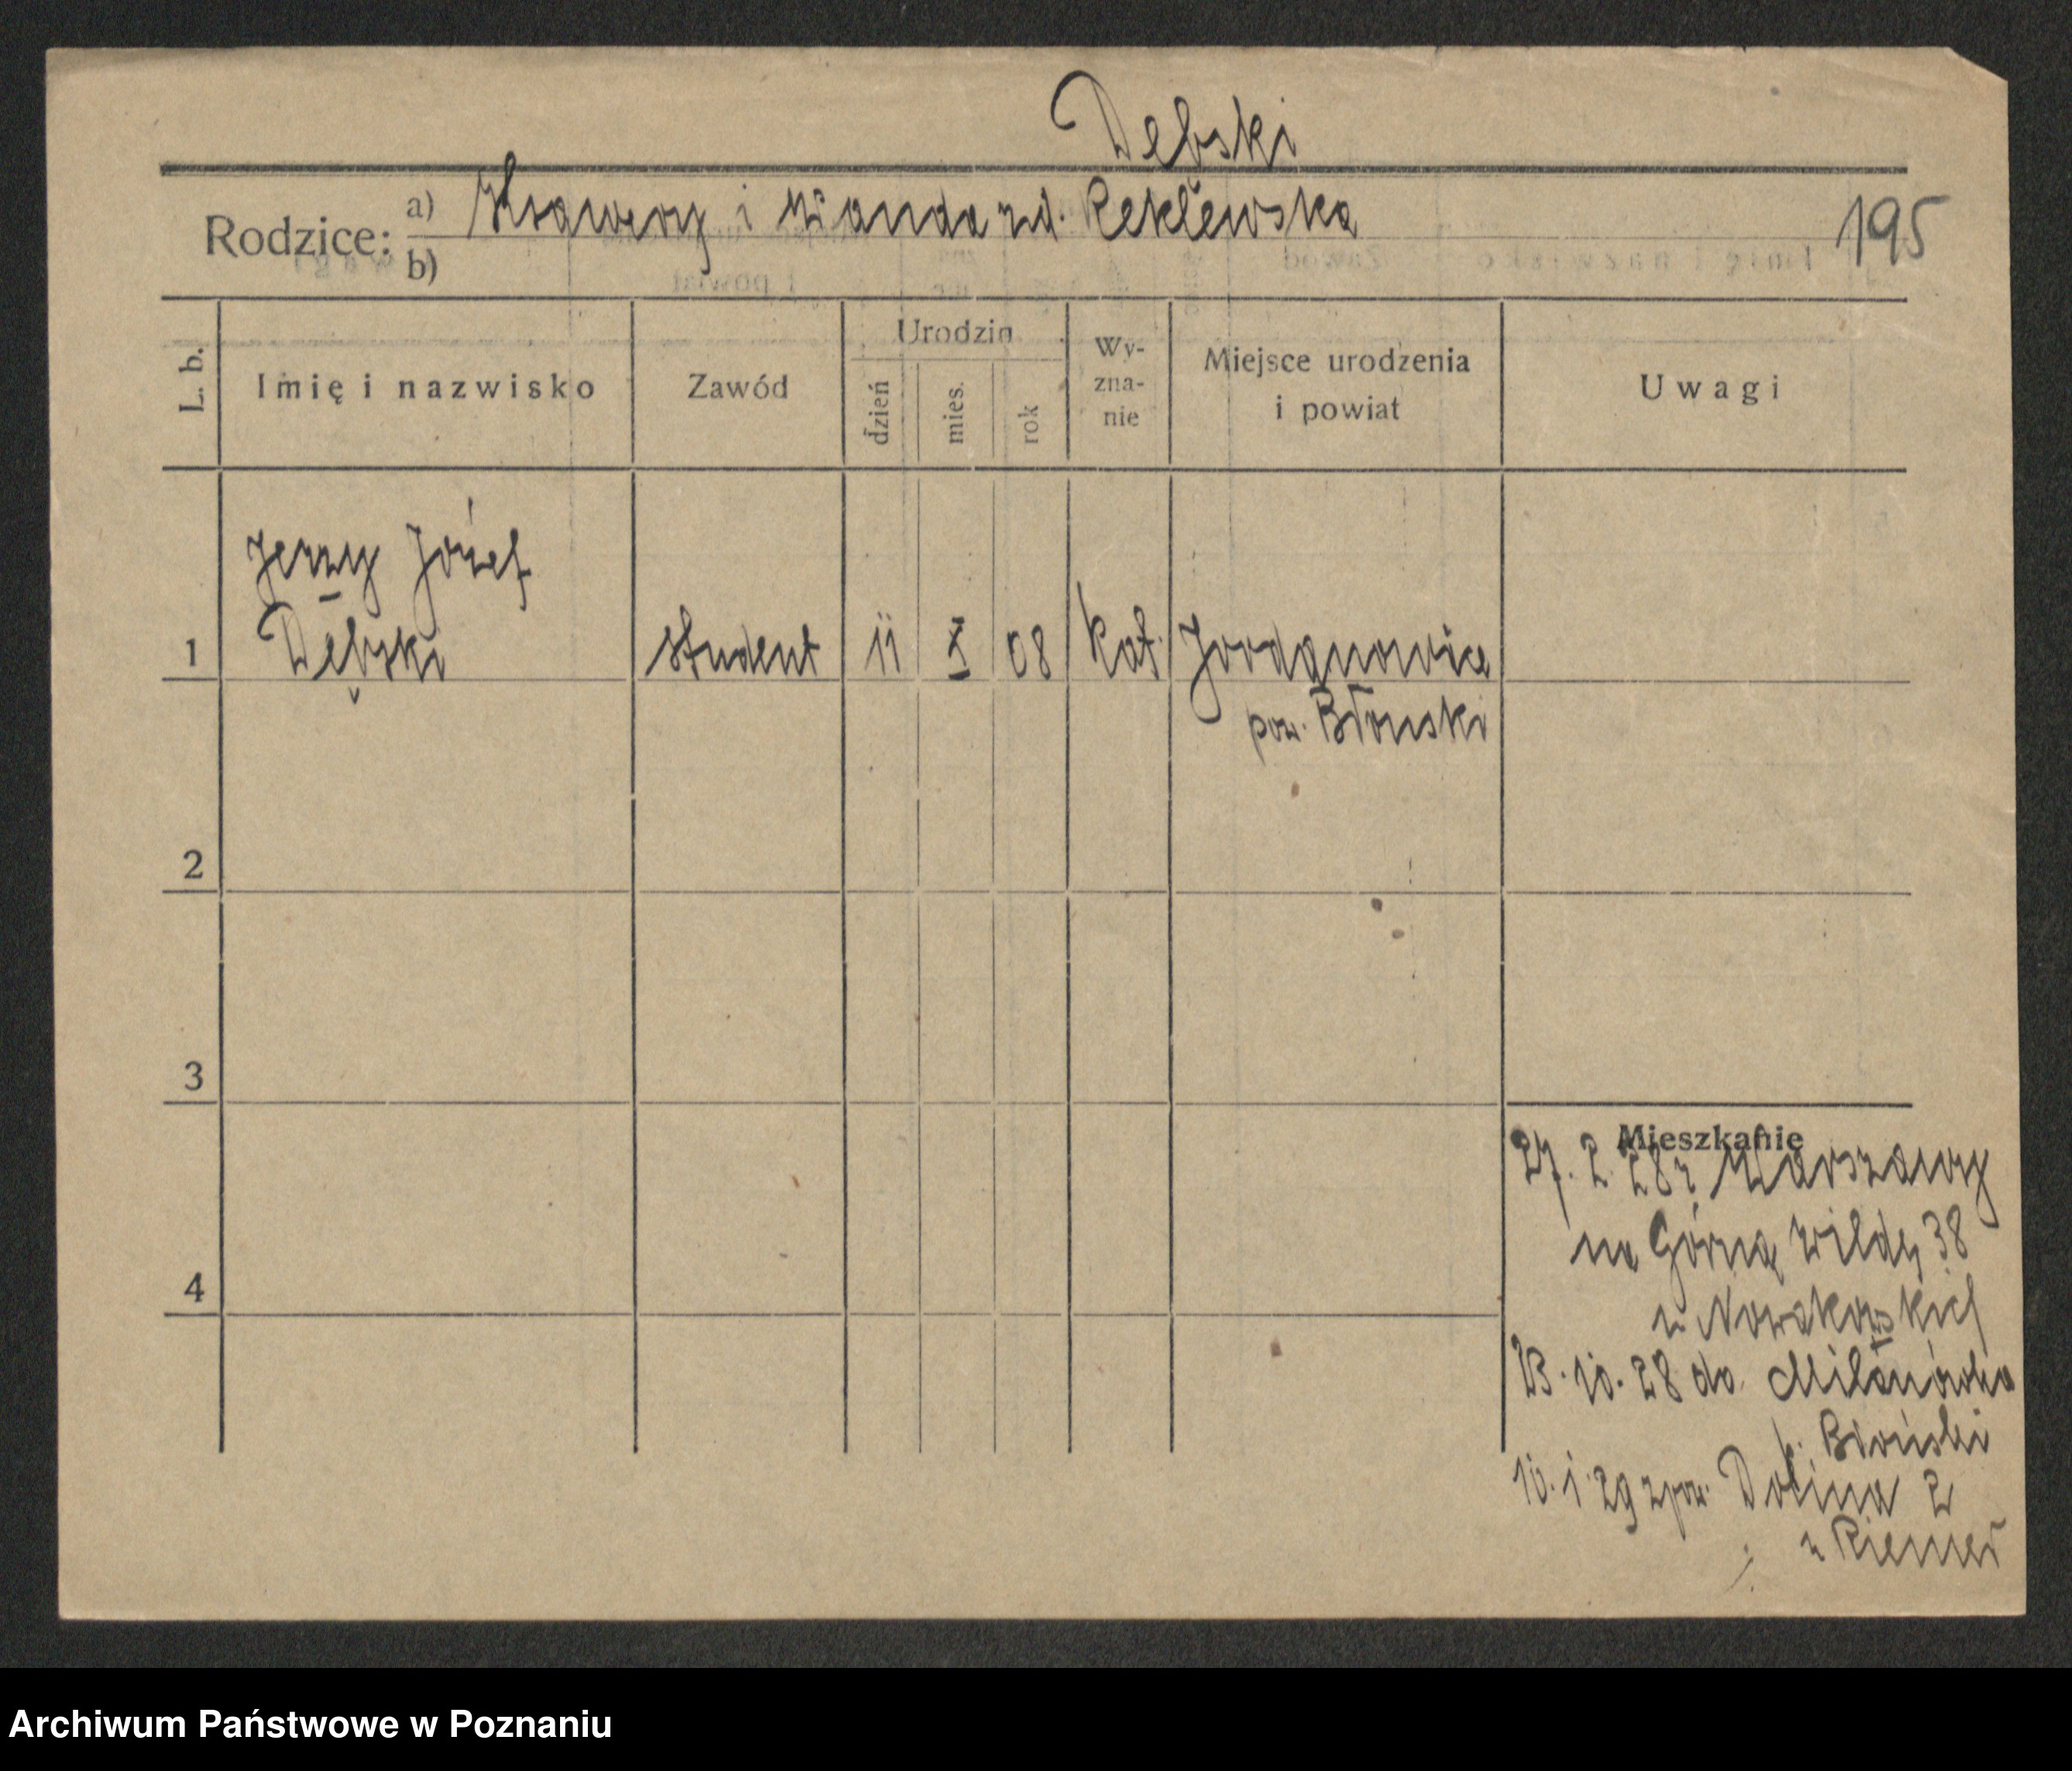 Dębski
Rodzice: a) Ksawery i Wanda zd. Rekłewska
b)
195
L. b.
Imię i nazwisko
Zawód
Urodzin
dzień
mies.
rok
Wy-
zna-
nie
Miejsce urodzenia
i powiat
Uwagi
Jerzy Józef
1 Dębski student 11 X 08 kat. Jordanowice
pow. Błonski
2
3
4
Mieszkanie
27. 2. 28 z Warszawy
na Górną Wildę 38
u Nowakowskich
23. 10. 28 do Milanówka
p. Błoński
10. 1. 29 zpow. Dolina 2
u Riemer
Archiwum Państwowe w Poznaniu